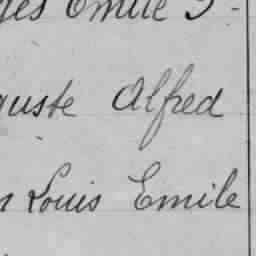 ges Emile
guste Alfred
n Louis Emile